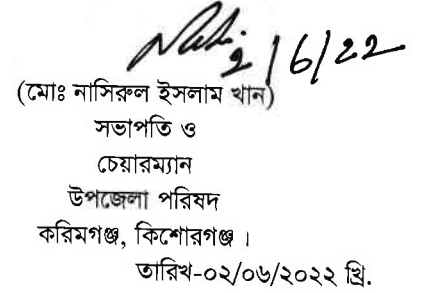 2/6/22
(মোঃ নাসিরুল ইসলাম খান)
সভাপতি ও
চেয়ারম্যান
উপজেলা পরিষদ
করিমগঞ্জ, কিশোরগঞ্জ ।
তারিখ-০২/০৬/২০২২ খ্রি.